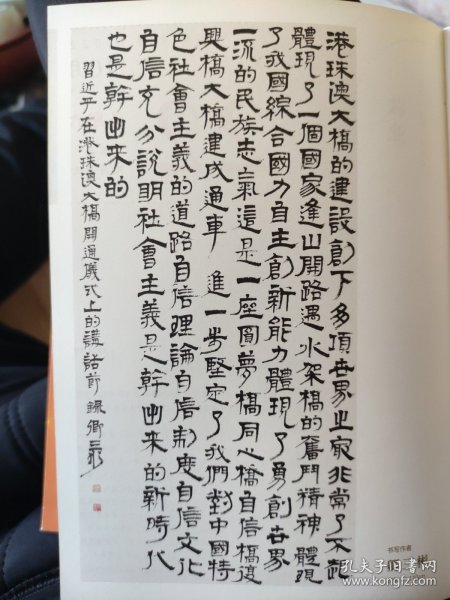 港珠澳大橋的建設創下多項世界之最非常了不起
體現了一個國家逢山開路遇水架橋的奮鬥精神體現
了我國綜合國力自主創新能力體現了勇創世界
一流的民族志氣這是一座圓夢橋同心橋自信橋復
興橋大橋建成通車進一步堅定了我們對中國特
色社會主義的道路自信理論自信制度自信文化
自信充分說明社會主義是幹出來的新時代
也是幹出來的
習近平在港珠澳大橋開通儀式上的講話節錄
书写作者
孔夫子旧书网